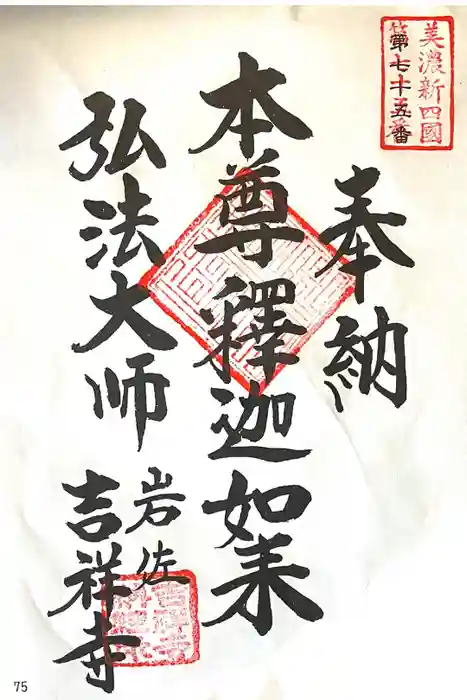 美濃新四國
第七十五番
奉納
本尊釋迦如来
弘法大师
岩佐
吉祥寺
75